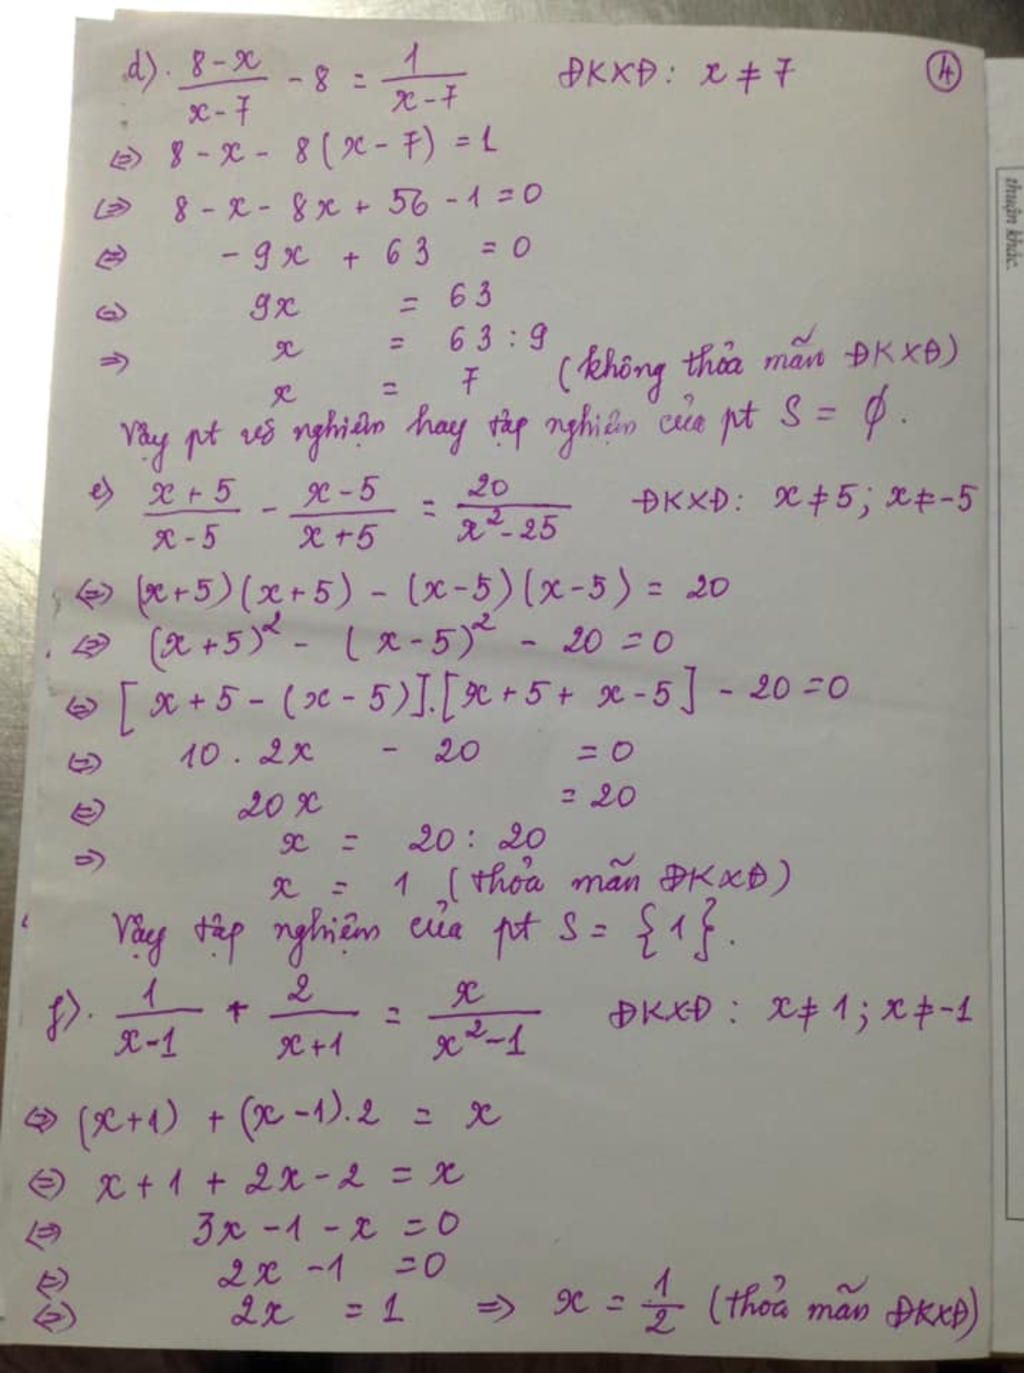 d). (8-x)/(x-7) - 8 = 1/(x-7)   ĐKXĐ: x ≠ 7   ④
⇔ 8 - x - 8(x-7) = 1
⇔ 8 - x - 8x + 56 - 1 = 0
⇔ -9x + 63 = 0
⇔ 9x = 63
⇒ x = 63 : 9
x = 7 (không thỏa mãn ĐKXĐ)
Vậy pt vô nghiệm hay tập nghiệm của pt S = ∅.
e) (x+5)/(x-5) - (x-5)/(x+5) = 20/(x²-25)   ĐKXĐ: x ≠ 5; x ≠ -5
⇔ (x+5)(x+5) - (x-5)(x-5) = 20
⇔ (x+5)² - (x-5)² - 20 = 0
⇔ [x+5-(x-5)].[x+5+x-5] - 20 = 0
⇔ 10 . 2x - 20 = 0
⇔ 20x = 20
⇒ x = 20 : 20
x = 1 (thỏa mãn ĐKXĐ)
Vậy tập nghiệm của pt S = {1}.
f). 1/(x-1) + 2/(x+1) = x/(x²-1)   ĐKXĐ: x ≠ 1; x ≠ -1
⇔ (x+1) + (x-1).2 = x
⇔ x + 1 + 2x - 2 = x
⇔ 3x - 1 - x = 0
⇔ 2x - 1 = 0
⇔ 2x = 1 ⇒ x = 1/2 (thỏa mãn ĐKXĐ)
thuận khác.